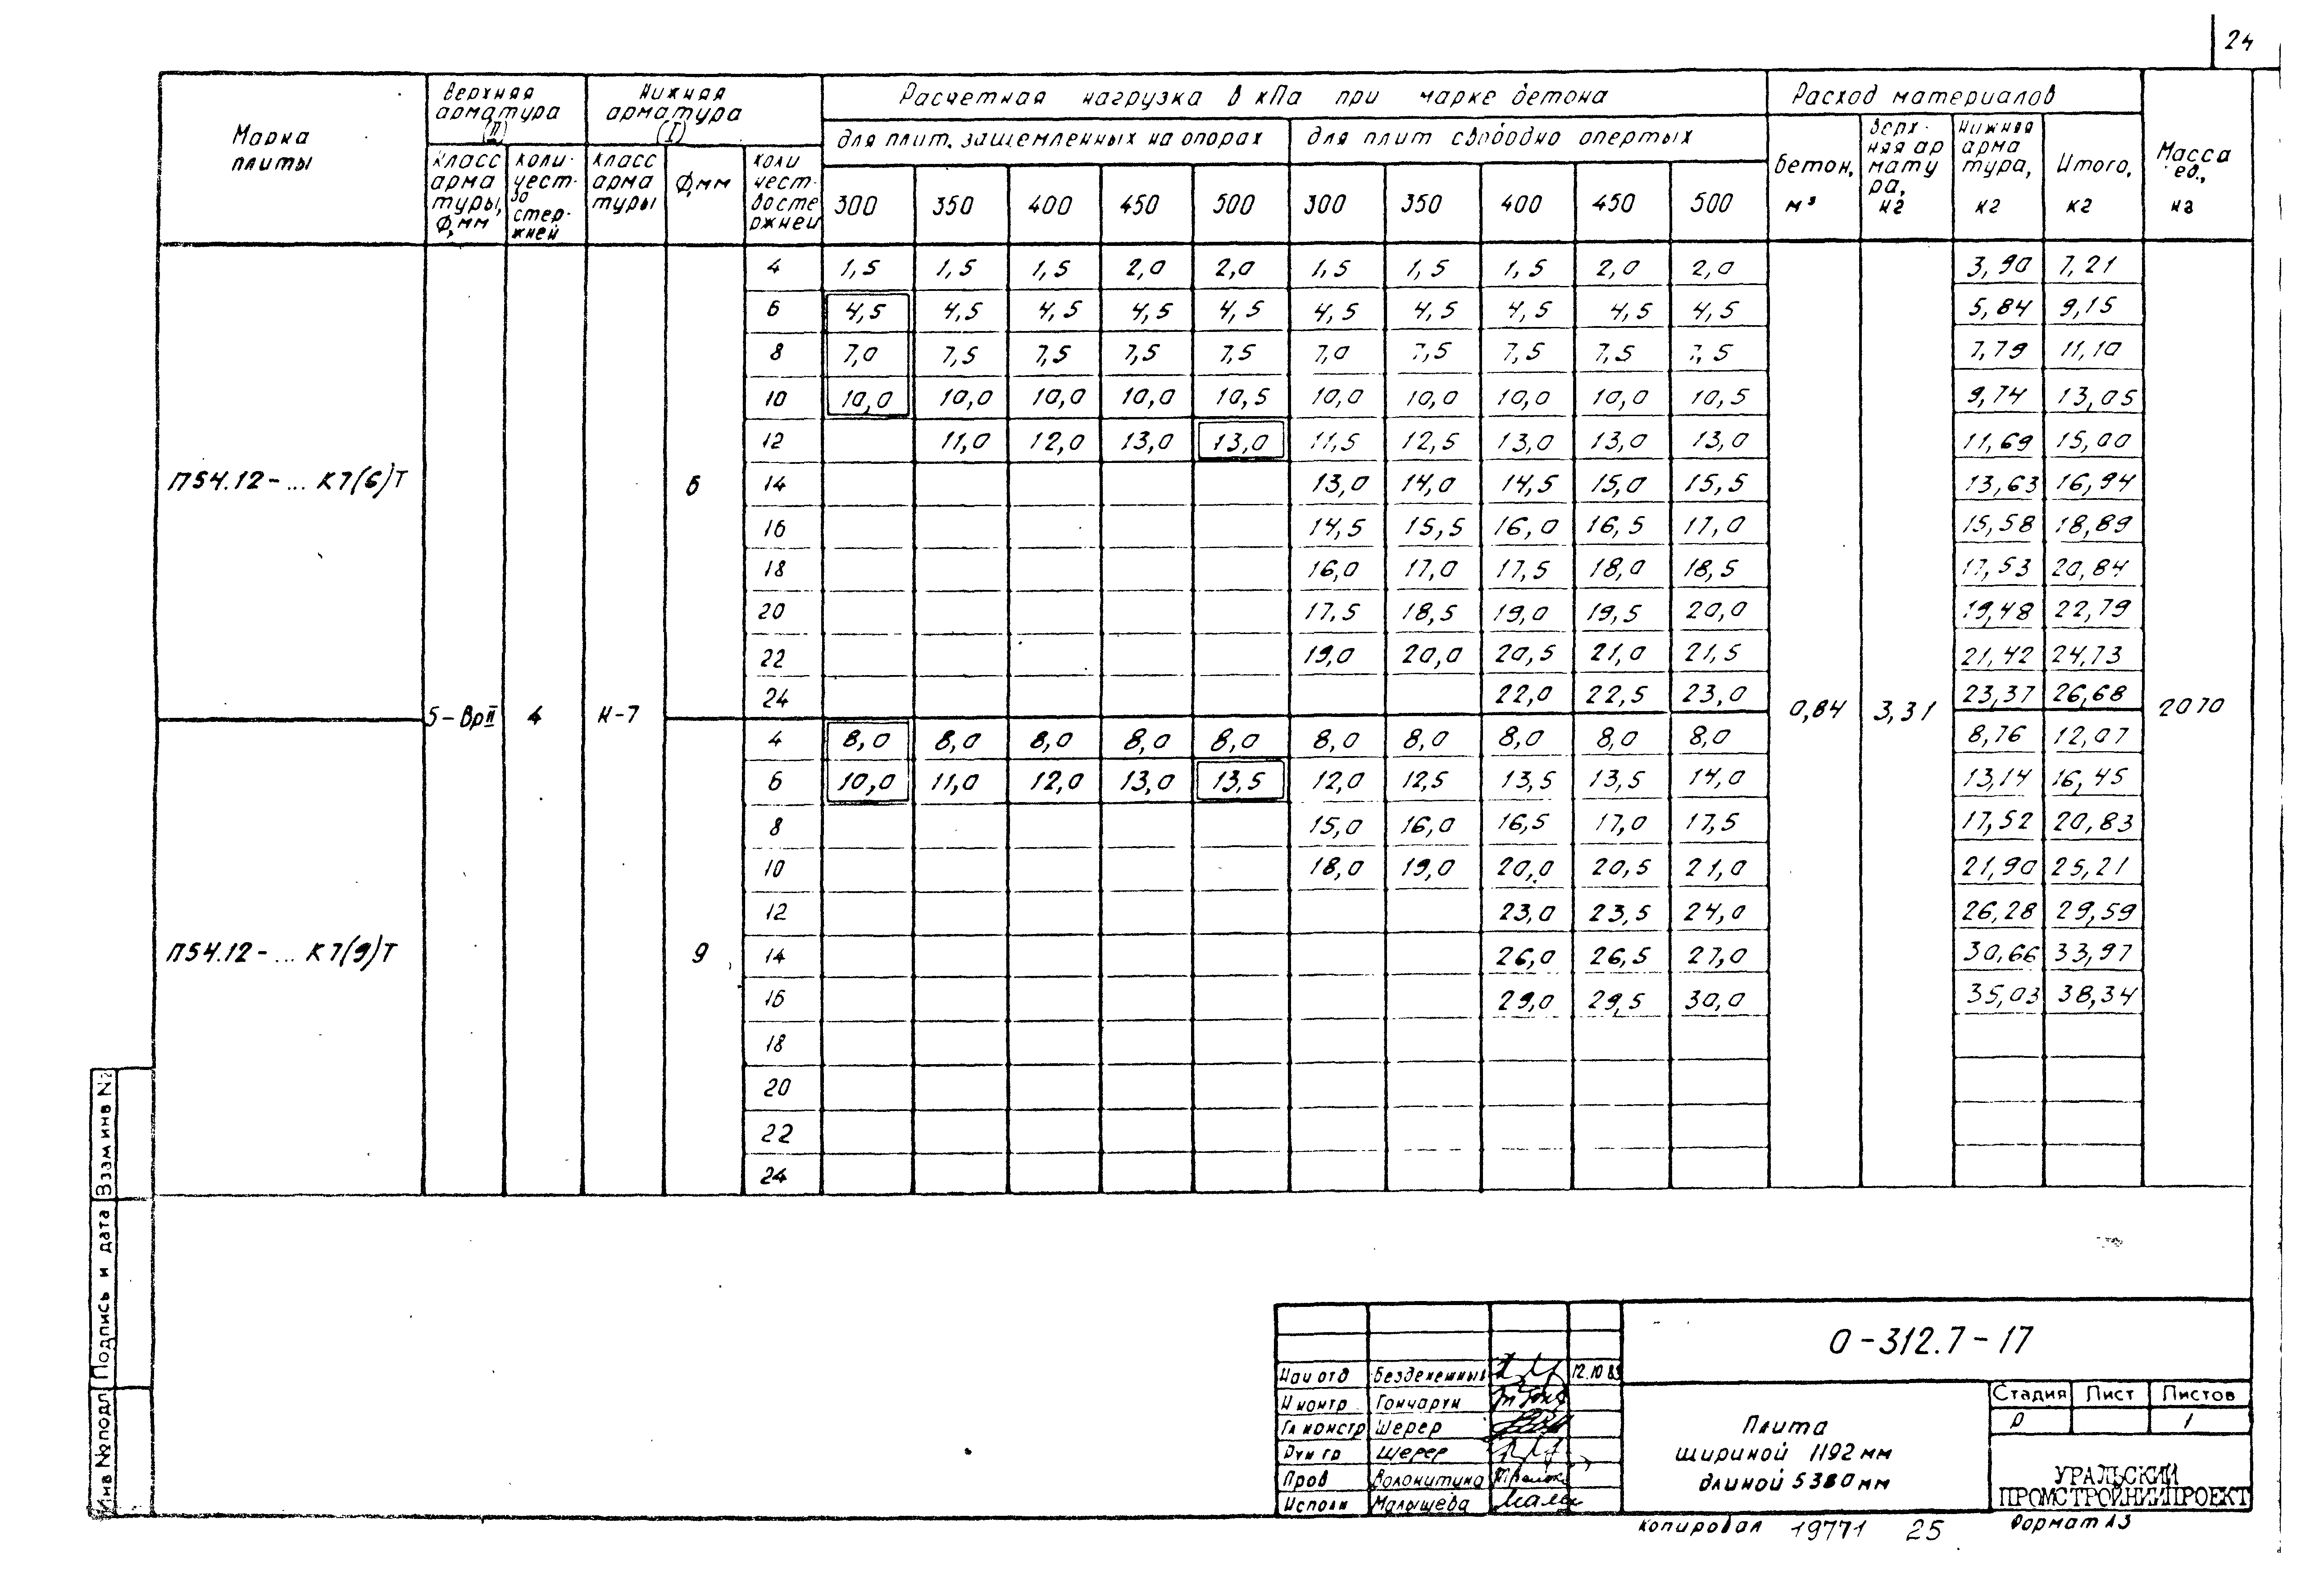 24
Марка плиты
Верхняя арматура (II)
Нижняя арматура (I)
Расчетная нагрузка в кПа при марке бетона
Расход материалов
Масса ед., кг
для плит, защемленных на опорах
для плит свободно опертых
класс арматуры, Ф, мм
количество стержней
класс арматуры
Ф, мм
количество стержней
300 350 400 450 500 300 350 400 450 500
бетон, м³
верхняя арматура, кг
нижняя арматура, кг
Итого, кг
4 1,5 1,5 1,5 2,0 2,0 1,5 1,5 1,5 2,0 2,0 3,90 7,21
6 4,5 4,5 4,5 4,5 4,5 4,5 4,5 4,5 4,5 4,5 5,84 9,15
8 7,0 7,5 7,5 7,5 7,5 7,0 7,5 7,5 7,5 7,5 7,79 11,10
10 10,0 10,0 10,0 10,0 10,5 10,0 10,0 10,0 10,0 10,5 9,74 13,05
12 11,0 12,0 13,0 13,0 11,5 12,5 13,0 13,0 13,0 11,69 15,00
П54.12-... К7(6)Т 6 14 13,0 14,0 14,5 15,0 15,5 13,63 16,94
16 14,5 15,5 16,0 16,5 17,0 15,58 18,89
18 16,0 17,0 17,5 18,0 18,5 17,53 20,84
20 17,5 18,5 19,0 19,5 20,0 19,48 22,79
22 19,0 20,0 20,5 21,0 21,5 21,42 24,73
24 22,0 22,5 23,0 23,37 26,68
5-ВрII 4 К-7 0,84 3,31 2070
4 8,0 8,0 8,0 8,0 8,0 8,0 8,0 8,0 8,0 8,0 8,76 12,07
6 10,0 11,0 12,0 13,0 13,5 12,0 12,5 13,5 13,5 14,0 13,14 16,45
8 15,0 16,0 16,5 17,0 17,5 17,52 20,83
10 18,0 19,0 20,0 20,5 21,0 21,90 25,21
12 23,0 23,5 24,0 26,28 29,59
П54.12-... К7(9)Т 9 14 26,0 26,5 27,0 30,66 33,97
16 29,0 29,5 30,0 35,03 38,34
18
20
22
24
Инв № подл Подпись и дата Взам инв №
0-312.7-17
Нач отд Безденежный 12.10.83
Н контр Гончарук
Гл констр Шерер
Рук гр Шерер
Пров Волокитина
Исполн Малышева
Плита
шириной 1192 мм
длиной 5380 мм
Стадия Лист Листов
Р 1
УРАЛЬСКИЙ
ПРОМСТРОЙНИИПРОЕКТ
Копировал 19771 25 Формат А3